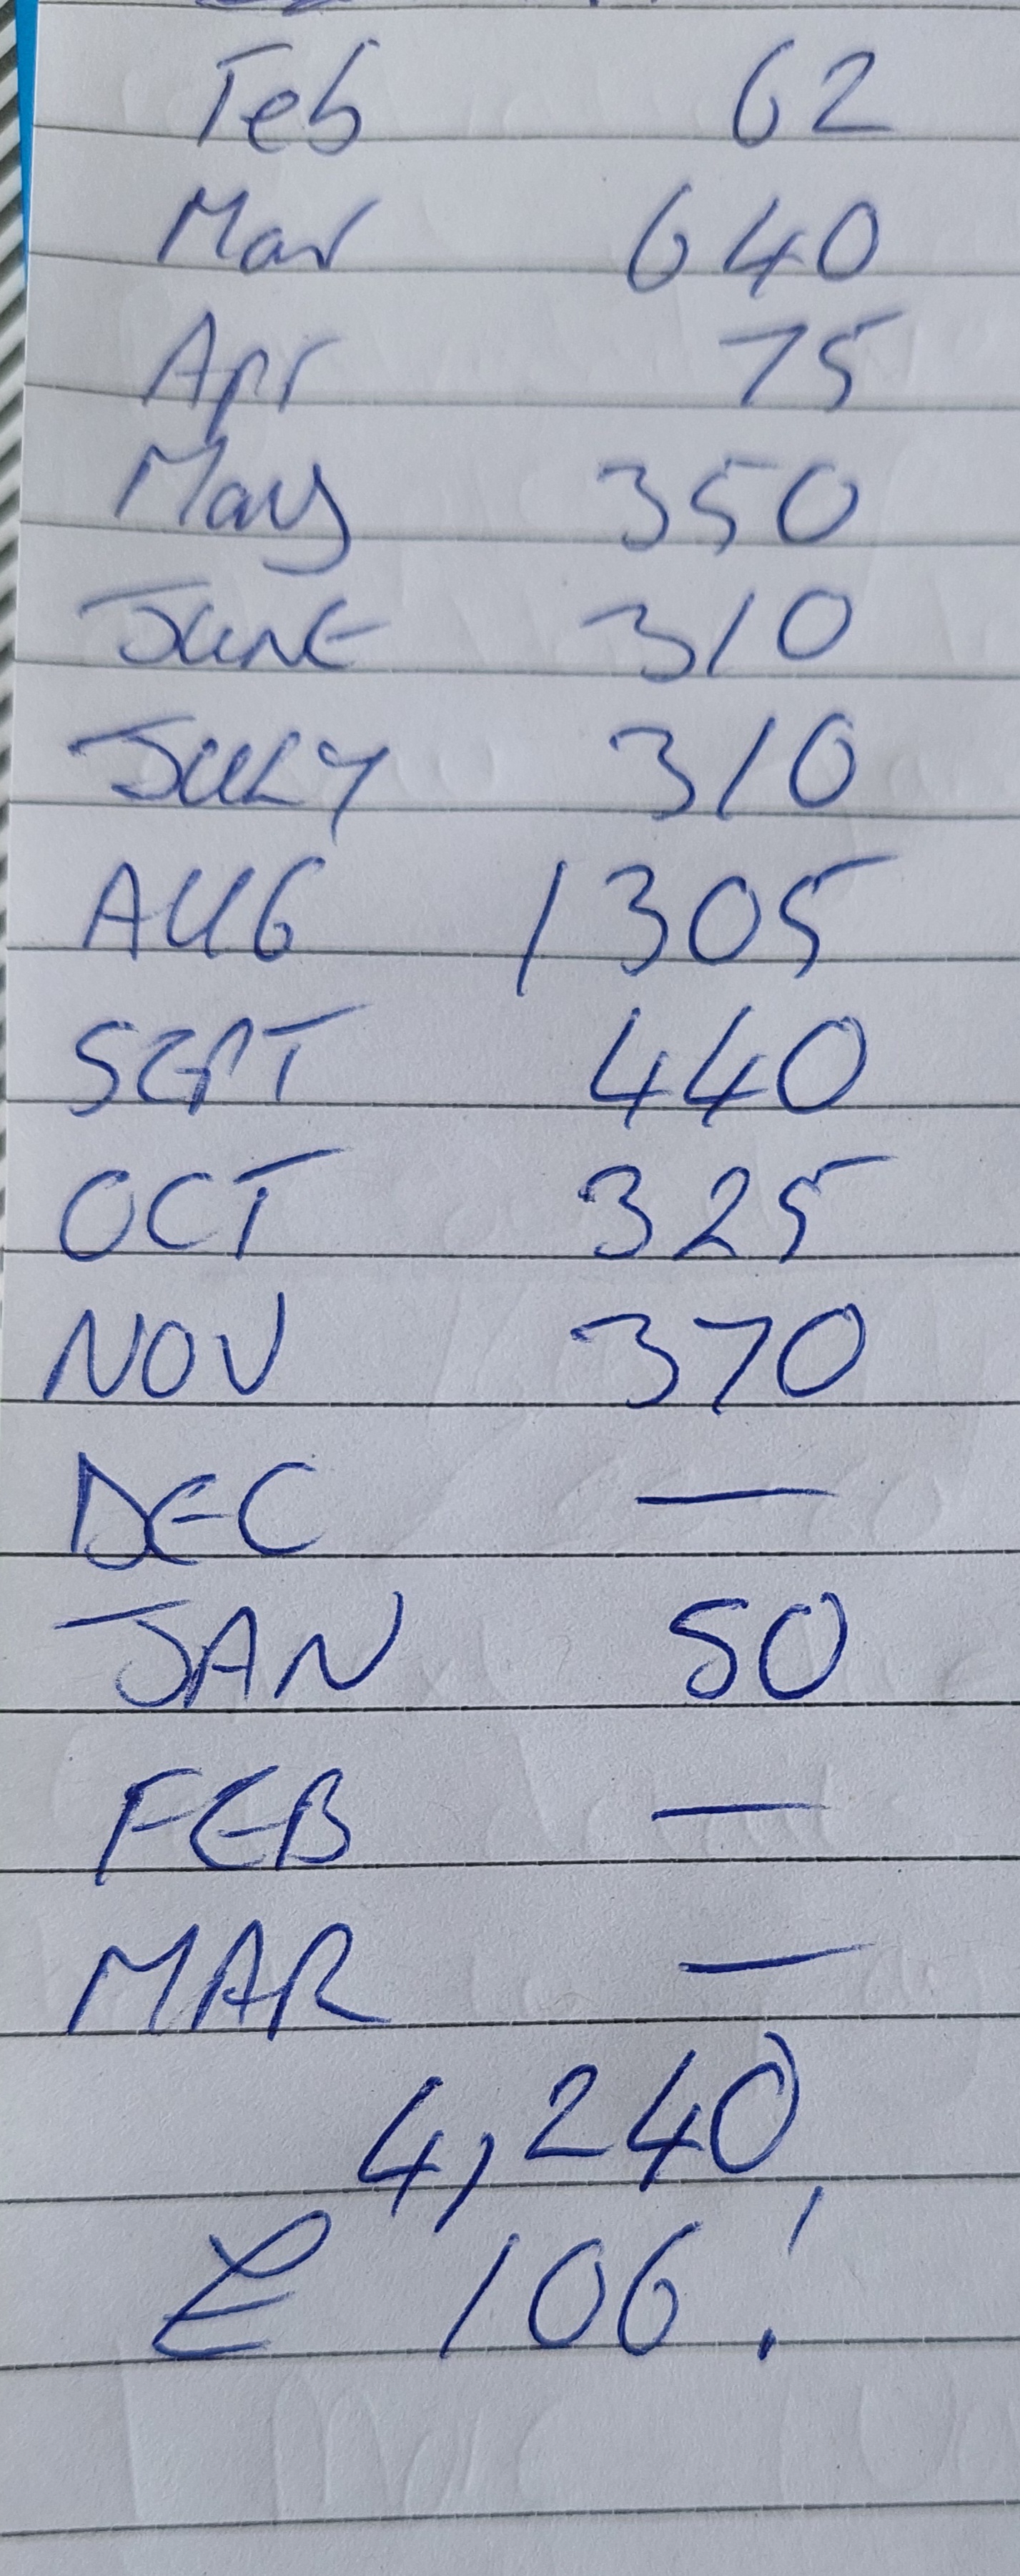 Feb 62
Mar 640
Apr 75
May 350
JUNE 310
JULY 310
AUG 1305
SEPT 440
OCT 325
NOV 370
DEC —
JAN 50
FEB —
MAR —
4,240
£ 106!